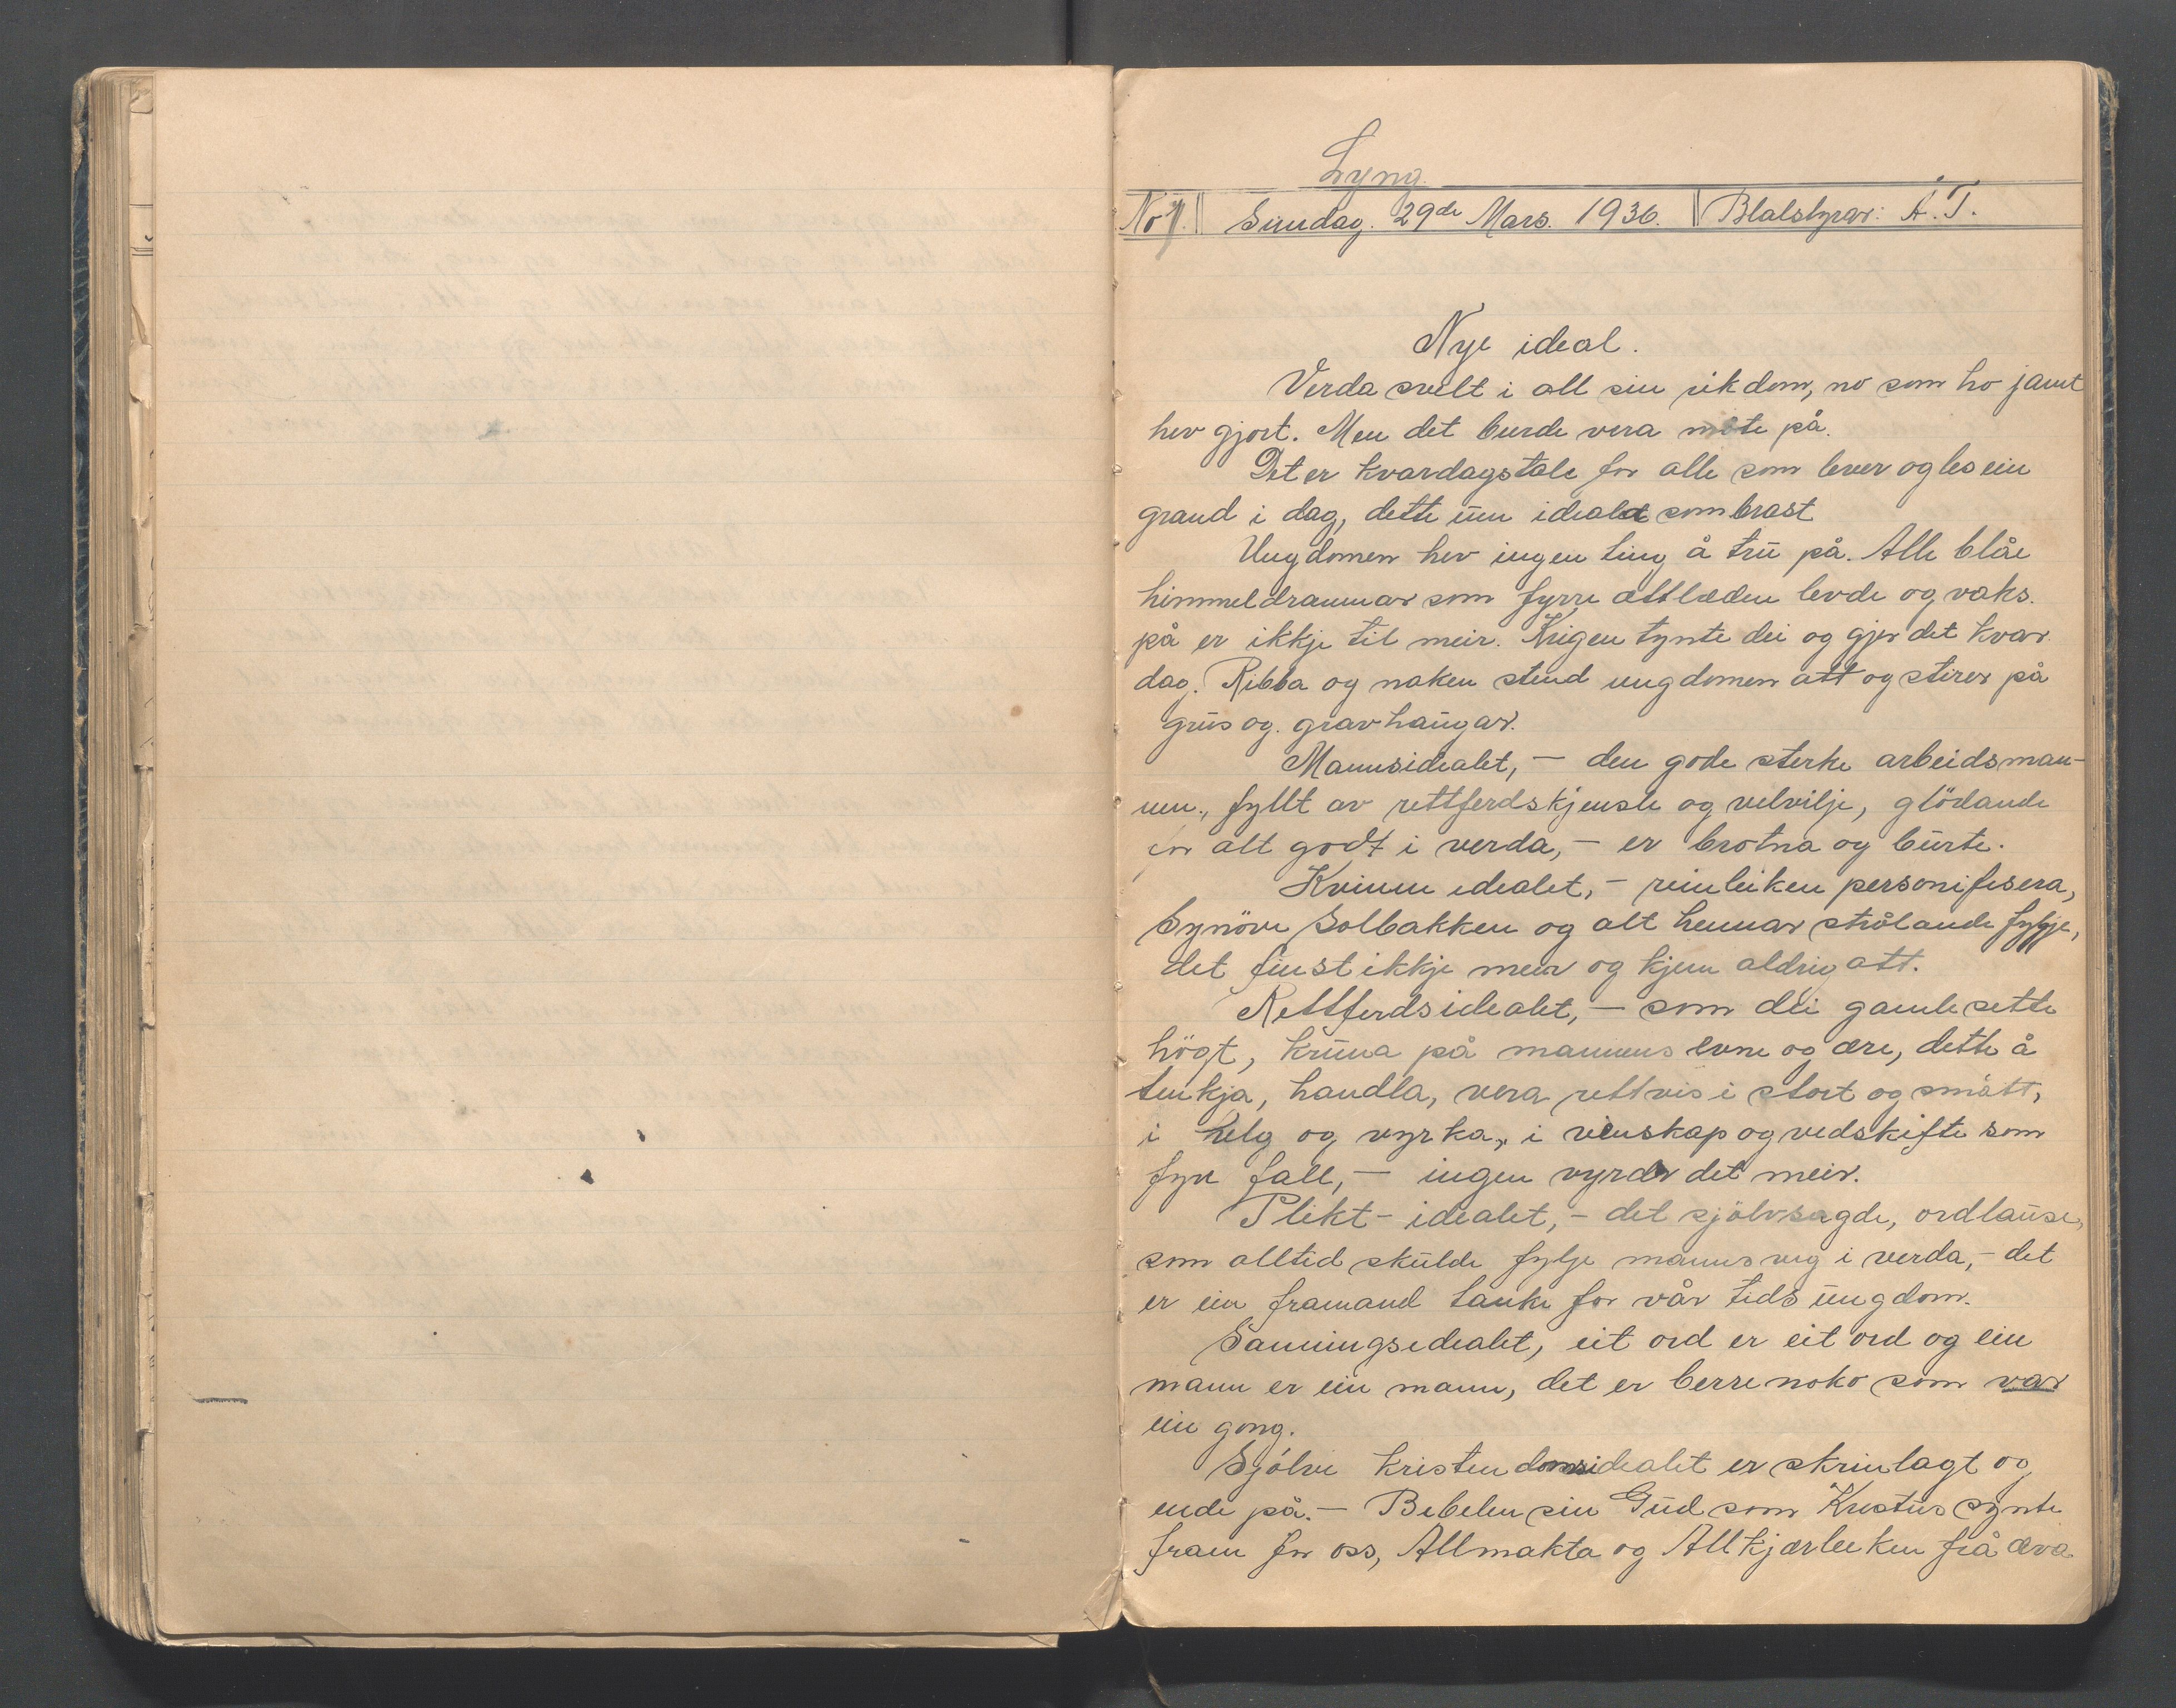 Lyng.
No 7. Sundag. 29de Mars. 1936. Bladstyrar: A.T.
Nye ideal.
Verda svelt i all sin rikdom, no som ho jamt
hev gjort. Men det burde vera måte på.
Det er kvardagstale for alle som lever og les ein
grand i dag, dette um ideala som brast
Ungdomen hev ingen ting å tru på. Alle blåe
himmeldraumar som fyrre ættlæden levde og vaks.
på er ikkje til meir. Krigen tynte dei og gjer det kvar
dag. Ribba og naken stend ungdomen att og stirer på
grus og. gravhaugar.
Mannsidealet, – den gode sterke arbeidsman-
nen., fyllt av rettferdskjensle og velvilje, glödande
for alt godt i verda, – er brotna og burte.
Kvinneidealet, – reinleiken personifisera,
Synöve Solbakken og alt hennar strålande fylgje,
det finst ikkje meir og kjem aldrig att.
Rettferdsidealet, – som dei gamle sette
högt, kruna på mannens evne og ære, dette å
tenkja, handla, vera rettvis i stort og smått,
i helg og vyrka, i vinskap og vedskifte som
fyre fall, – ingen vyrder det meir.
Plikt-idealet, – det sjölvsagde, ordlause,
som alltid skulde fylje manns veg i verda, – det
er ein framand tanke for vår tids ungdom.
Sanningsidealet, eit ord er eit ord og ein
mann er ein mann, det er berre noko som var
ein gong.
Sjölve kristendomsidealet er skrinlagt og
ende på. – Bibelen sin Gud som Kristus synte
fram for oss, Allmakta og Allkjærleiken frå æva